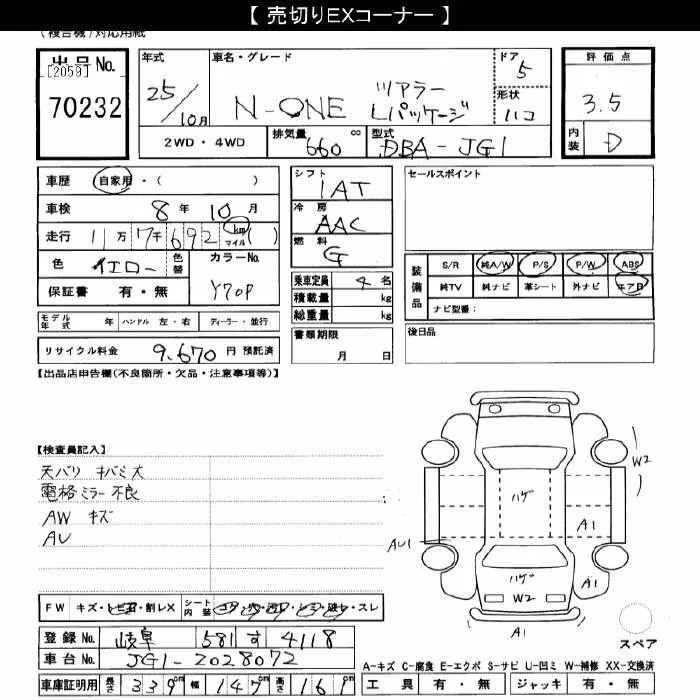 【 売切りEXコーナー 】
(複合機)対応用紙
出品No.
[2059]
70232
年式
25/10月
車名・グレード
N-ONE ツアラー
Lパッケージ
ドア
5
形状
ハコ
評価点
3.5
内装
D
2WD・4WD
排気量
660 cc
型式
DBA-JG1
車歴 自家用・( )
車検 8年10月
走行 11万7千692 km マイル ( )
色 イエロー 色替
カラーNo.
Y70P
保証書 有・無
シフト
IAT
冷房
AAC
燃料
G
セールスポイント
装備品
S/R 純A/W P/S P/W ABS
純TV 純ナビ 革シート 外ナビ エアB
ナビ型番:
乗車定員 4名
積載量 kg
総重量 kg
モデル年式 年 ハンドル 左・右 ディーラー・並行
リサイクル料金 9,670 円 預託済
書類期限
月 日
後日品
【出品店申告欄(不良箇所・欠品・注意事項等)】
【検査員記入】
天バリ キバミ大
電格ミラー不良
AW キズ
AU
W2
ハゲ
A1
AU1
ハゲ
W2
A1
A1
スペア
FW キズ・トビ石・割レX
シート内装 スレ
登録No. 岐阜 581 す 4118
車台No. JG1-2028072
車庫証明用 長さ 339 幅 147 高さ 161
A-キズ C-腐食 E-エクボ S-サビ U-凹ミ W-補修 XX-交換済
工具 有・無 ジャッキ 有・無